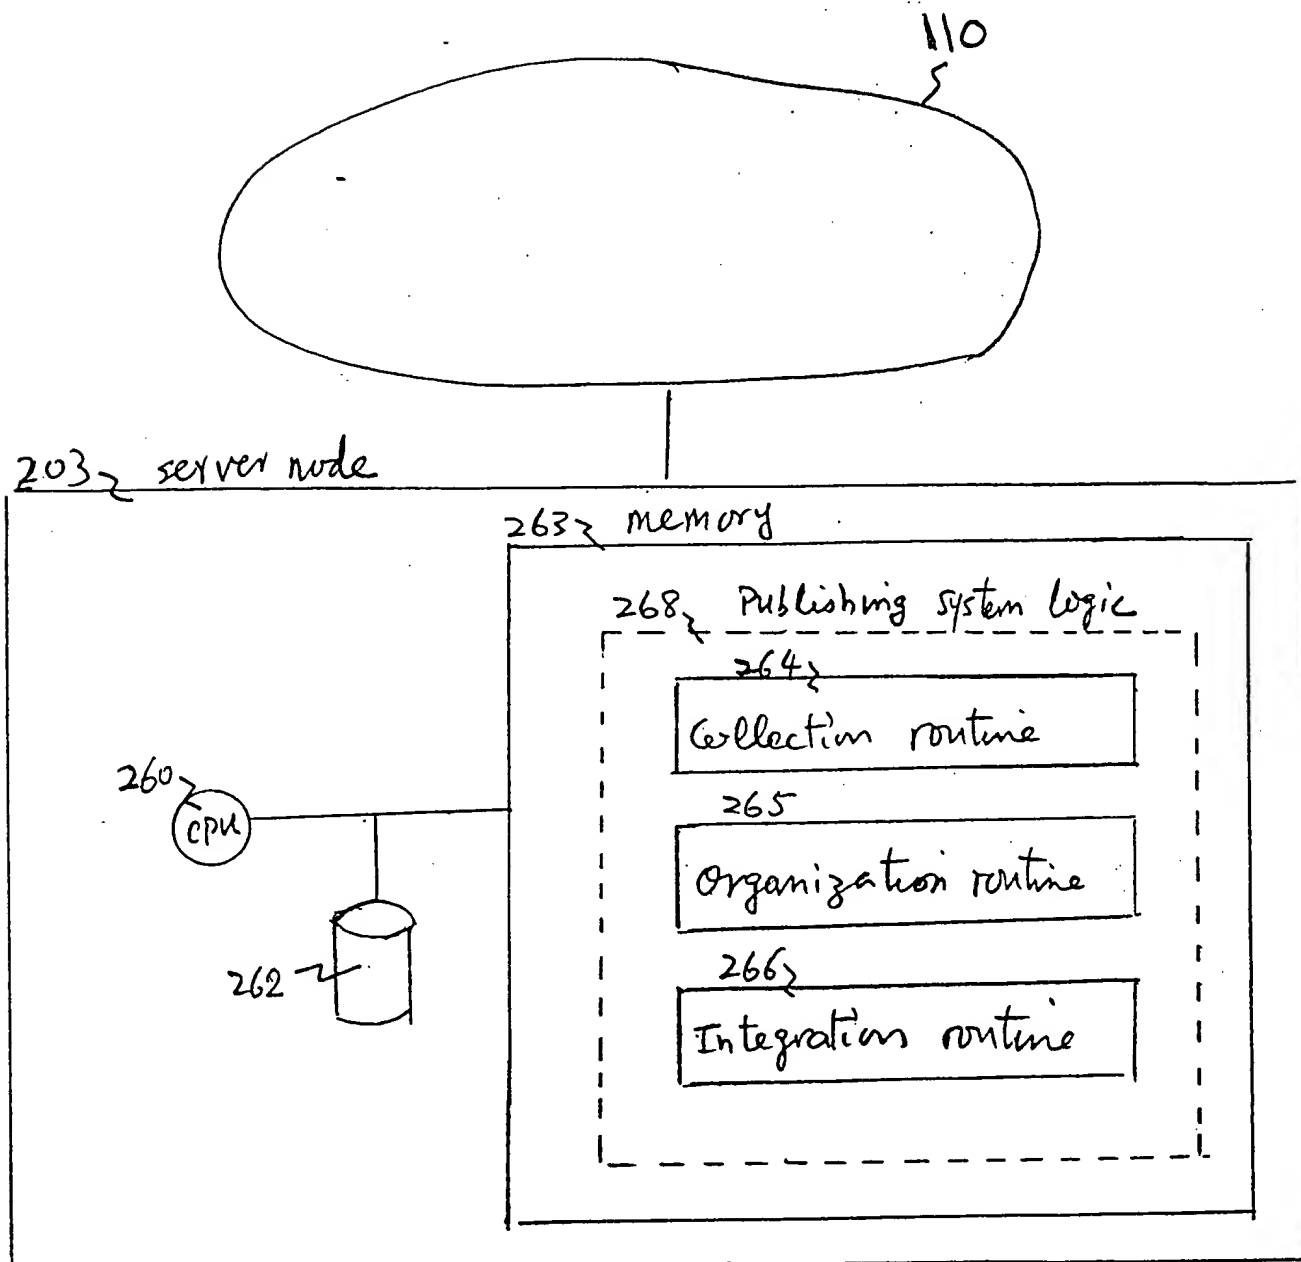 110
203 server node
263 memory
268 Publishing system logic
264
Collection routine
260
cpu
265
Organization routine
262
266
Integration routine